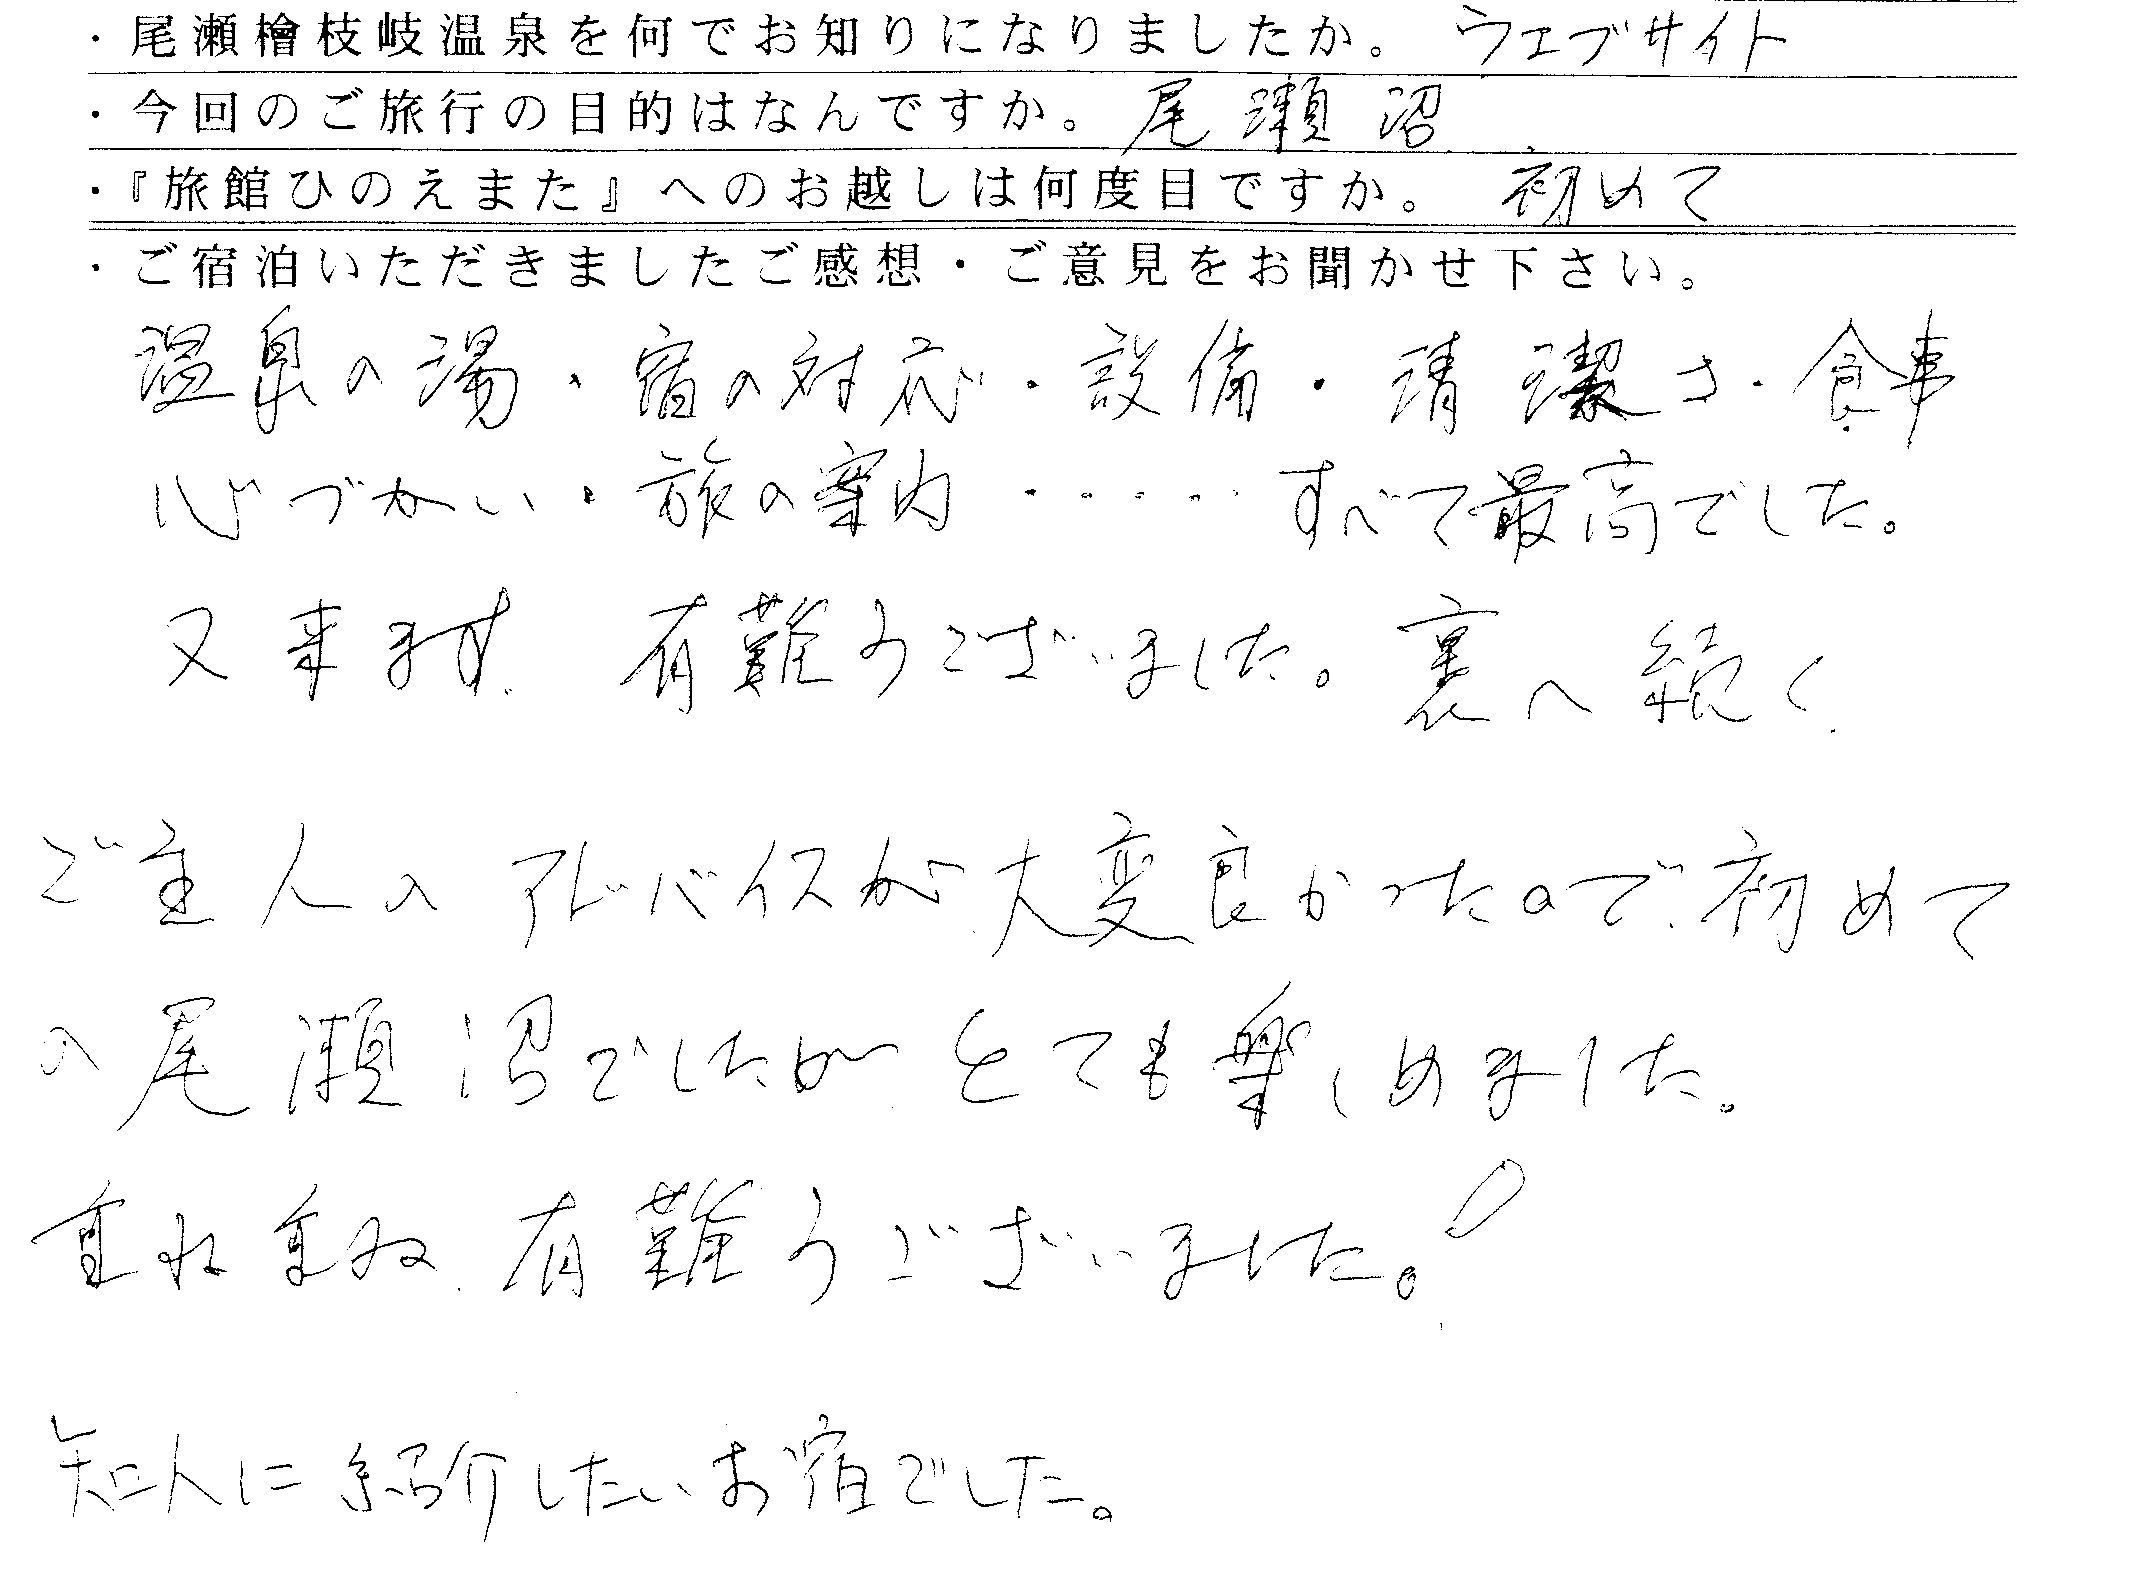 ・尾瀬檜枝岐温泉を何でお知りになりましたか。 ウェブサイト
・今回のご旅行の目的はなんですか。 尾瀬沼
・『旅館ひのえまた』へのお越しは何度目ですか。 初めて
・ご宿泊いただきましたご感想・ご意見をお聞かせ下さい。
温泉の湯・宿の対応・設備・清潔さ・食事
心づかい・旅の案内・・・・・すべて最高でした。
又来ます、有難うございました。裏へ続く
ご主人のアドバイスが大変良かったので、初めて
の尾瀬沼でしたが、とても楽しめました。
重ね重ね、有難うございました。
知人に紹介したいお宿でした。